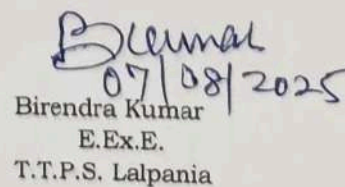 BKumar
07/08/2025
Birendra Kumar
E.Ex.E.
T.T.P.S. Lalpania